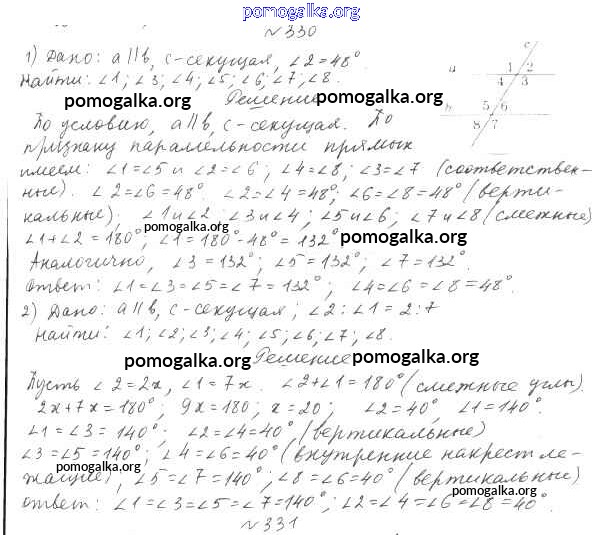 pomogalka.org
№ 330
1) Дано: a∥b, c-секущая, ∠2=48°
Найти: ∠1; ∠3; ∠4; ∠5; ∠6; ∠7; ∠8.
c
a 1 2
4 3
b 5 6
8 7
pomogalka.org Решение pomogalka.org
По условию, a∥b, c-секущая. По
признаку параллельности прямых
имеем: ∠1=∠5 и ∠2=∠6; ∠4=∠8; ∠3=∠7 (соответствен-
ные). ∠2=∠6=48°. ∠2=∠4=48°; ∠6=∠8=48° (верти-
кальные); ∠1 и ∠2; ∠3 и ∠4; ∠5 и ∠6; ∠7 и ∠8 (смежные)
pomogalka.org
∠1+∠2=180°; ∠1=180°-48°=132° pomogalka.org
Аналогично, ∠3=132°; ∠5=132°; ∠7=132°.
Ответ: ∠1=∠3=∠5=∠7=132°; ∠4=∠6=∠8=48°.
2) Дано: a∥b, c-секущая; ∠2:∠1=2:7
Найти: ∠1; ∠2; ∠3; ∠4; ∠5; ∠6; ∠7; ∠8.
pomogalka.org Решение pomogalka.org
Пусть ∠2=2x, ∠1=7x. ∠2+∠1=180° (смежные углы).
2x+7x=180°; 9x=180; x=20; ∠2=40°, ∠1=140°.
∠1=∠3=140°; ∠2=∠4=40° (вертикальные)
∠3=∠5=140°; ∠4=∠6=40° (внутренние накрест ле-
pomogalka.org
жащие), ∠5=∠7=140°; ∠8=∠6=40° (вертикальные)
pomogalka.org
Ответ: ∠1=∠3=∠5=∠7=140°; ∠2=∠4=∠6=∠8=40°.
№ 331